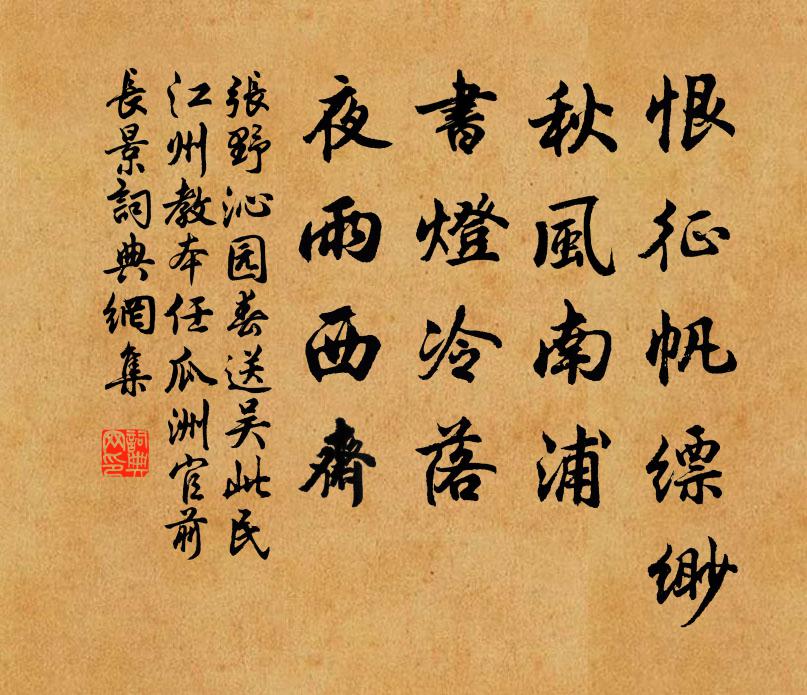 恨征帆缥緲
秋風南浦
書燈冷落
夜雨西齋
張野沁园春送吴此民
江州教本任瓜洲官前
長景詞典網集
詞典網印